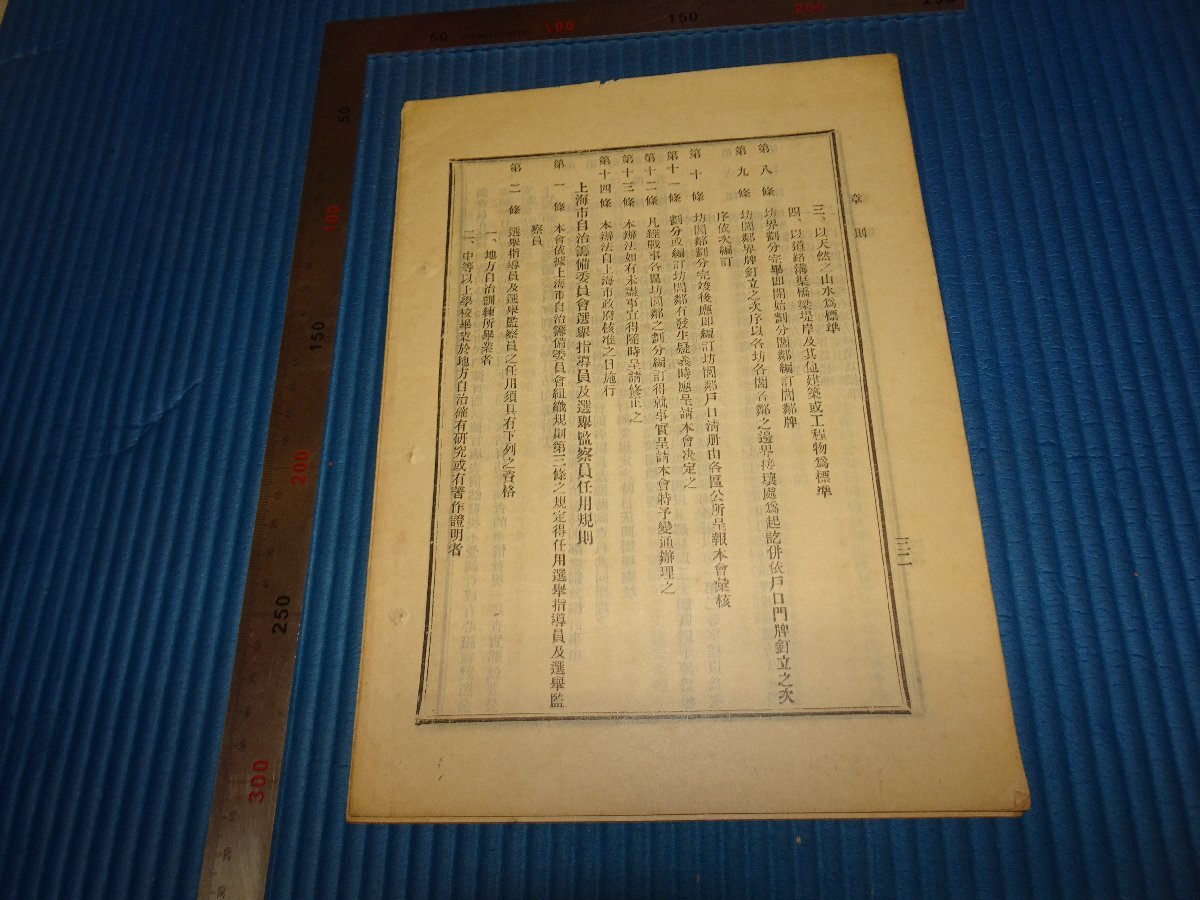 章則
三二
三、以天然之山水爲標準
四、以道路溝渠橋梁堤岸及其他建築或工程物爲標準
第八條 坊界劃分完畢即開始劃分閭鄰編訂閭鄰牌
第九條 坊閭鄰界牌釘立之次序以各坊各閭各鄰之邊界接壤處爲起訖併依戶口門牌釘立之次
序依次編訂
第十條 坊閭鄰劃分完竣後應即編訂坊閭鄰戶口清册由各區公所呈報本會彙核
第十一條 劃分或編訂坊閭鄰有發生疑義時應呈請本會決定之
第十二條 凡經戰事各區坊閭鄰之劃分編訂得就事實呈請本會特予變通辦理之
第十三條 本辦法如有未盡事宜得隨時呈請修正之
第十四條 本辦法自上海市政府核准之日施行
上海市自治籌備委員會選舉指導員及選舉監察員任用規則
第一條 本會依據上海市自治籌備委員會組織規則第三條之規定得任用選舉指導員及選舉監
察員
第二條 選舉指導員及選舉監察員之任用須具有下列之資格
一、地方自治訓練所畢業者
二、中等以上學校畢業於地方自治確有研究或有著作證明者
50
100
150
200
250
50
100
150
200
250
300